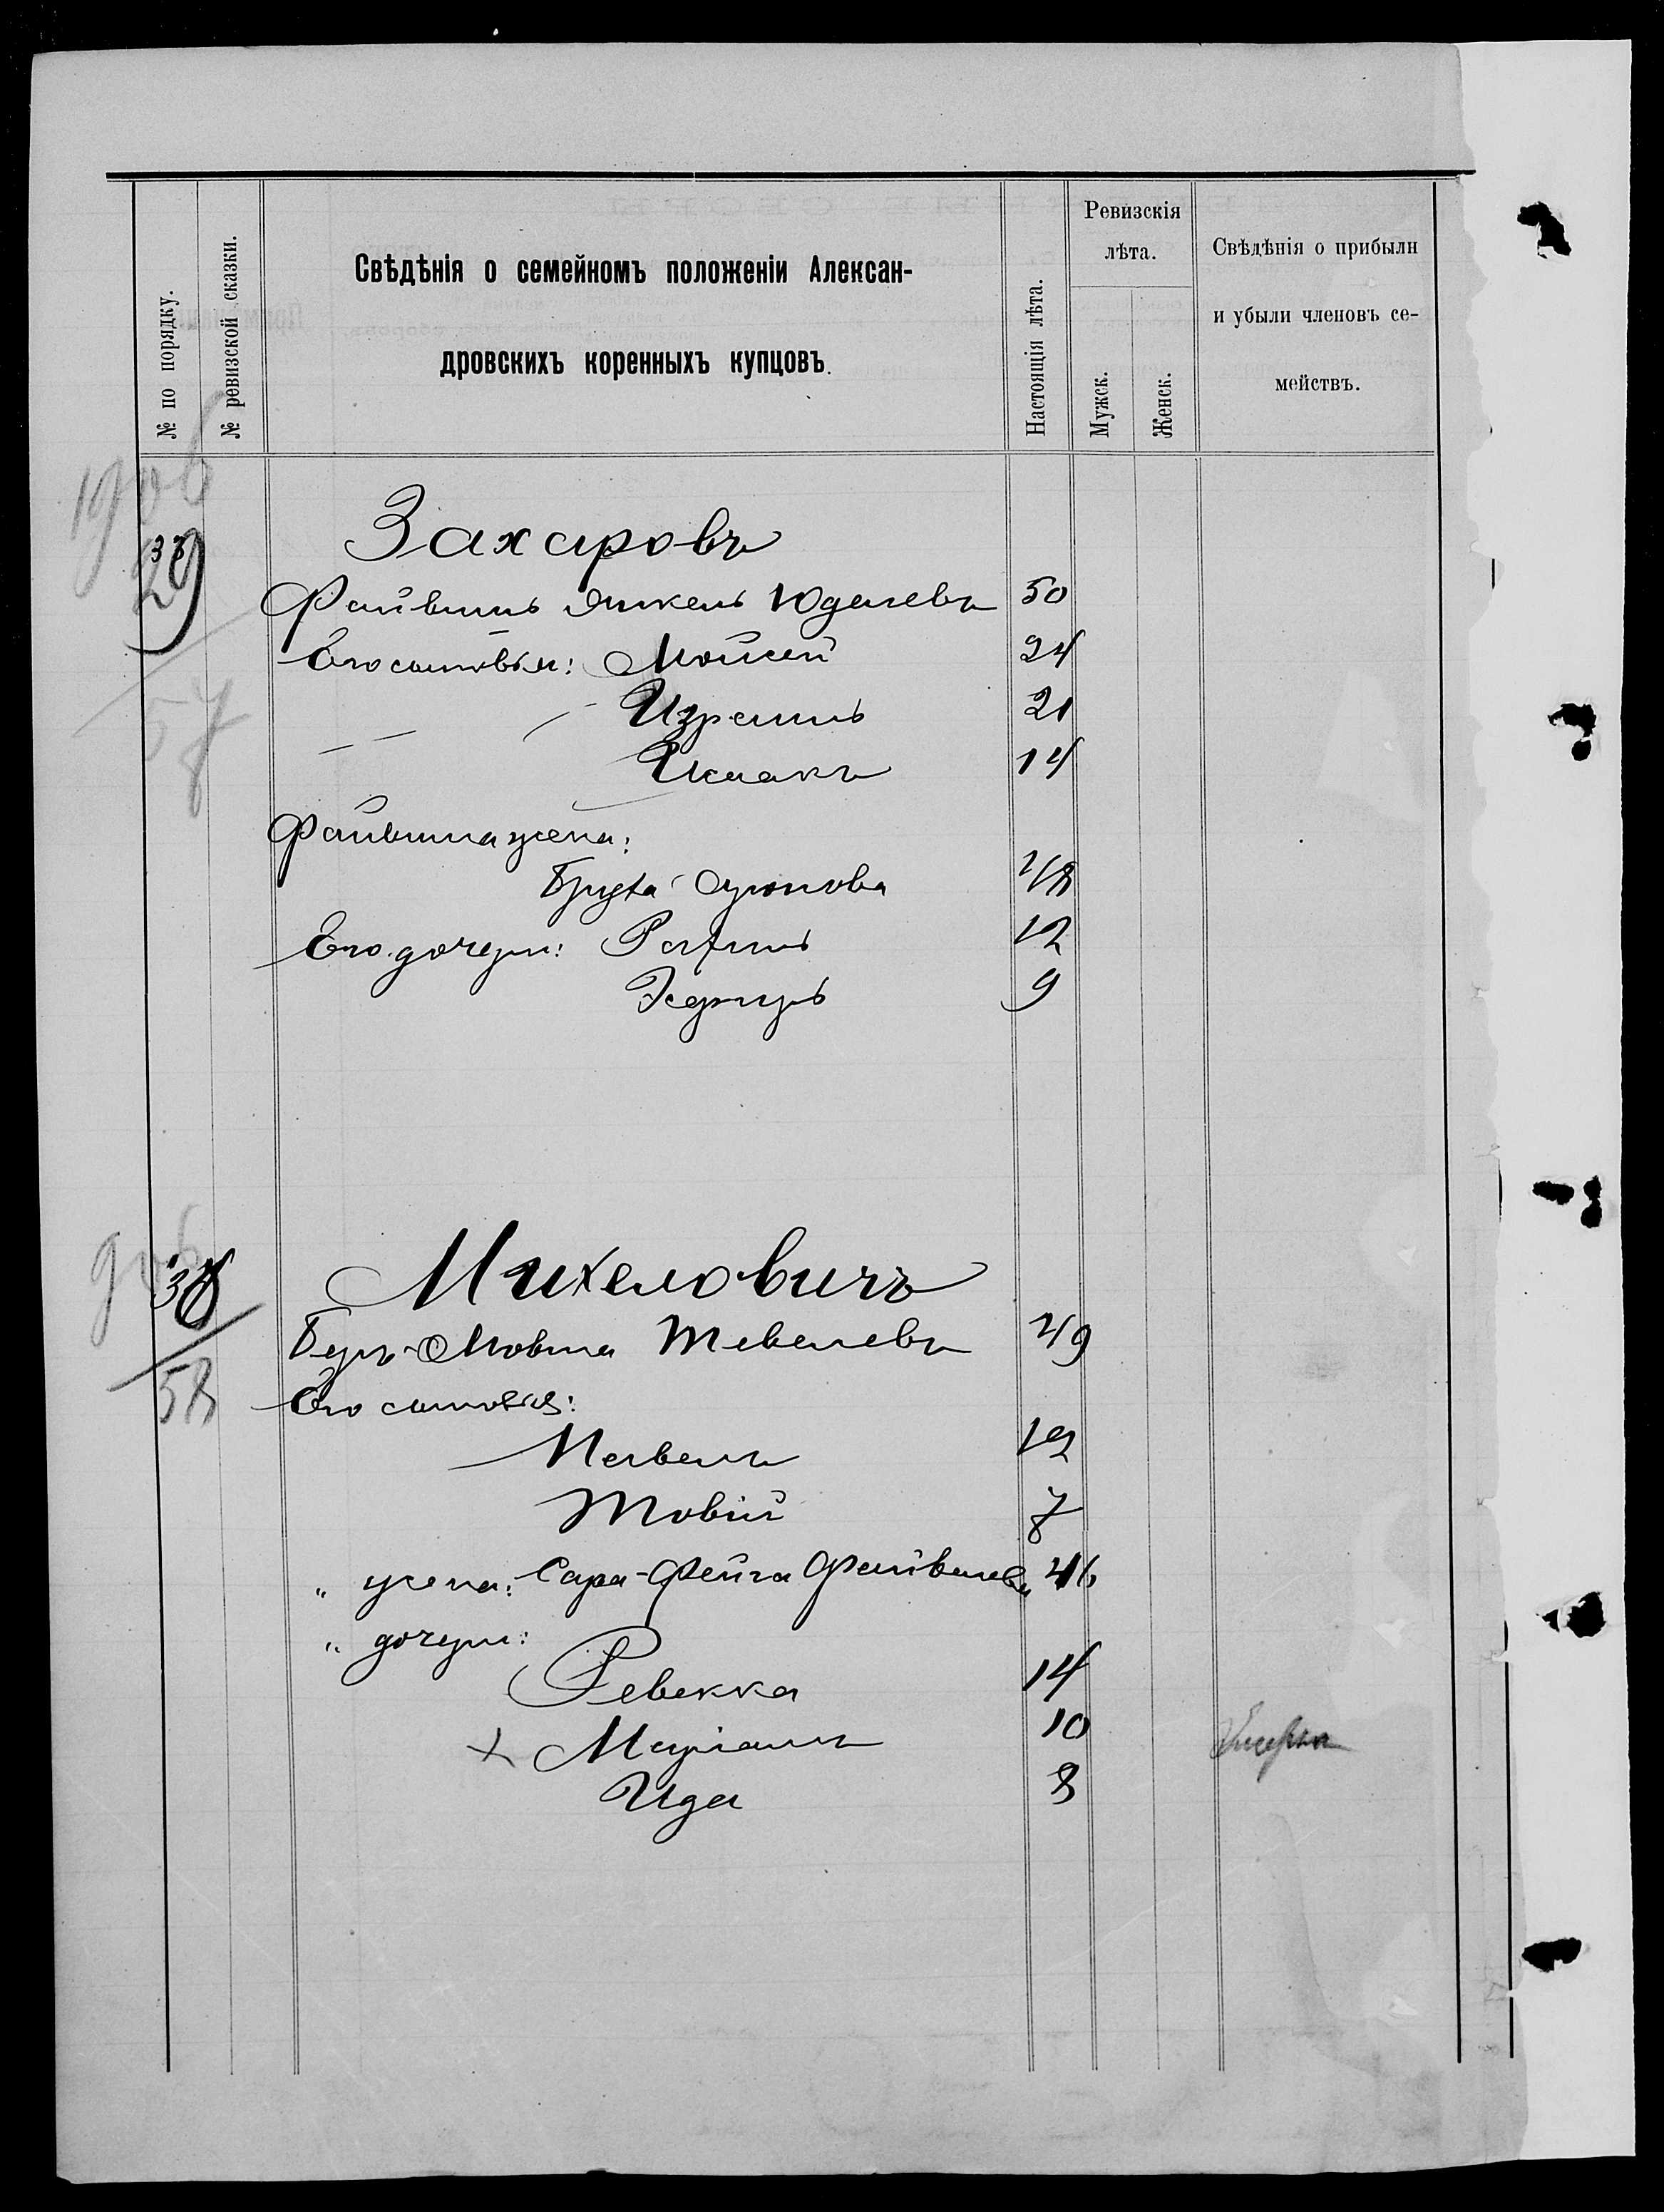 № по порядку.
№ ревизской сказки.
Свѣдѣнія о семейномъ положеніи Алексан-
дровскихъ коренныхъ купцовъ.
Настоящія лѣта.
Ревизскія
лѣта.
Мужск.
Женск.
Свѣдѣнія о прибыли
и убыли членовъ се-
мействъ.
1906
29
57
Захаровъ
Файвишъ Янкель Юделевъ 50
Его сыновья: Мойсей 24
Израиль 21
Исаакъ 14
Файвиша жена:
48
Его дочери: Рахиль 12
Эсфирь 9
906
58
Михеловичъ
Беръ-Мовша Тевелевъ 49
Его сыновья:
12
Товій 7
" жена: Сара-Фейга Файвишева 46
" дочери:
Ревекка 14
Маріамъ 10
Ида 8